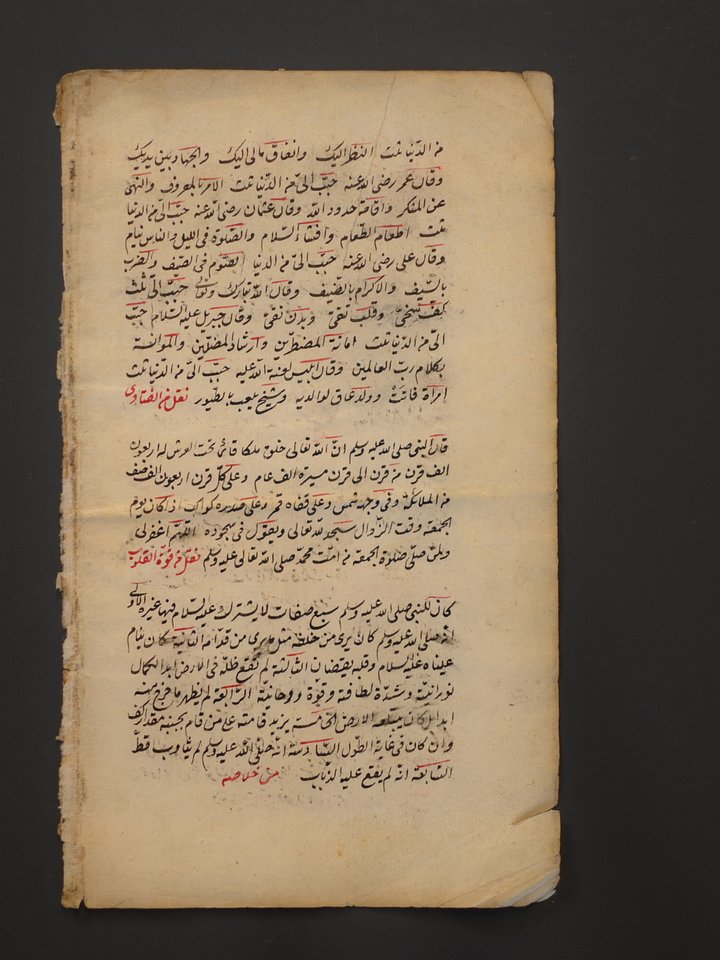 من الدنيا ثلث النظر اليك وانفاق مالى اليك والجهاد بين يديك
وقال عمر رضى الله عنه حبّب الىّ من الدّنيا ثلث الامر بالمعروف والنهى
عن المنكر واقامة حدود الله وقال عثمان رضى الله عنه حبّب الىّ من الدنيا
ثلث اطعام الطّعام وافشاء السّلام والصّلوة فى الليل والناس نيام
وقال على رضى الله عنه حبّب الىّ من الدنيا الصّوم فى الصّيف والضرب
بالسّيف والاكرام بالضّيف وقال الله تبارك وتعالى حبّب الىّ ثلث
كفّ سخىّ وقلب نقىّ وبدن نقىّ وقال جبريل عليه السّلام حبّب
الىّ من الدّنيا ثلث اعانة المضطرّين وارشاد المضلّين والموانسة
بكلام ربّ العالمين وقال ابليس لعنة الله عليه حبّب الىّ من الدّنيا ثلث
امراة فاتنة وولد عاق لوالديه وشيخ يلعب بالطّيور نقل من الفتاوى
قال النبى صلى الله عليه وسلم انّ الله تعالى خلق ملكا قائما تحت العرش له اربعون
الف قرن من قرن الى قرن مسيرة الف عام وعلى كلّ قرن اربعون الف صف
من الملائكة وفى وجهه شمس وعلى قفاه قمر وعلى صدره كواكب اذا كان يوم
الجمعة وقت الزّوال سجد لله تعالى ويقول فى سجوده اللّهمّ اغفر لى
ولمن صلّى صلوة الجمعة من امّت محمّد صلى الله تعالى عليه وسلم نقل من قوّة القلوب
كان للنبى صلى الله عليه وسلم سبع صفات لا يشترك عليه السّلام فيها غيره الاولى
انه صلى الله عليه وسلم كان يرى من خلفه مثل ما يرى من قدّامه الثانية كان ينام
عيناه عليه السلام وقلبه يقيضان الثالثة لم تقع ظلّه فى الارض ابدا لكمال
نورانيّة وشدّة لطافة وقوّة روحانيّة الرّابعة لم يظهر ما خرج منه
ابدا بل كان يبتلعه الارض الخامسة يزيد قامته على من قام بجنبه مقدار كف
وان كان فى غاية الطّول السّادسة انه صلى الله عليه وسلم لم يتثاوب قطّ
السّابعة انّه لم يقع عليه الذّباب من خلاصه